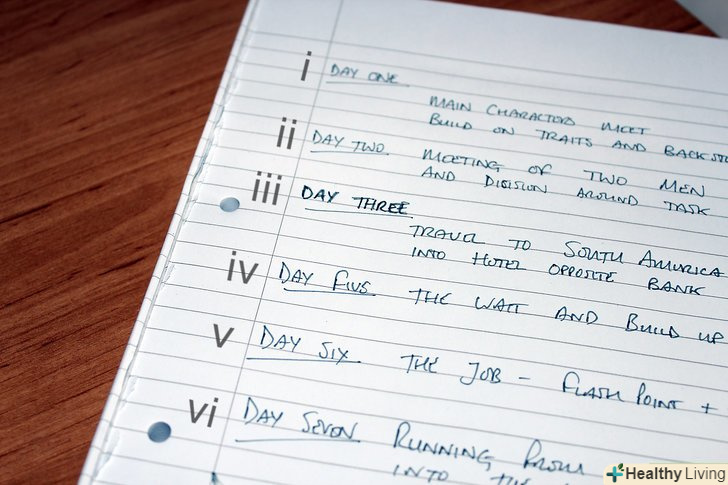 i DAY ONE
MAIN CHARACTERS MEET
BUILD ON TRAITS AND BACKSTO
ii DAY TWO MEETING OF TWO MEN
AND DIVISION AROUND TASK
iii DAY THREE
TRAVEL TO SOUTH AMERICA
INTO HOTEL OPPOSITE BANK
iv DAY FIVE THE WAIT AND BUILD UP
v DAY SIX THE JOB - FLASH POINT +
vi DAY SEVEN RUNNING FROM
INTO THE
Healthy Living